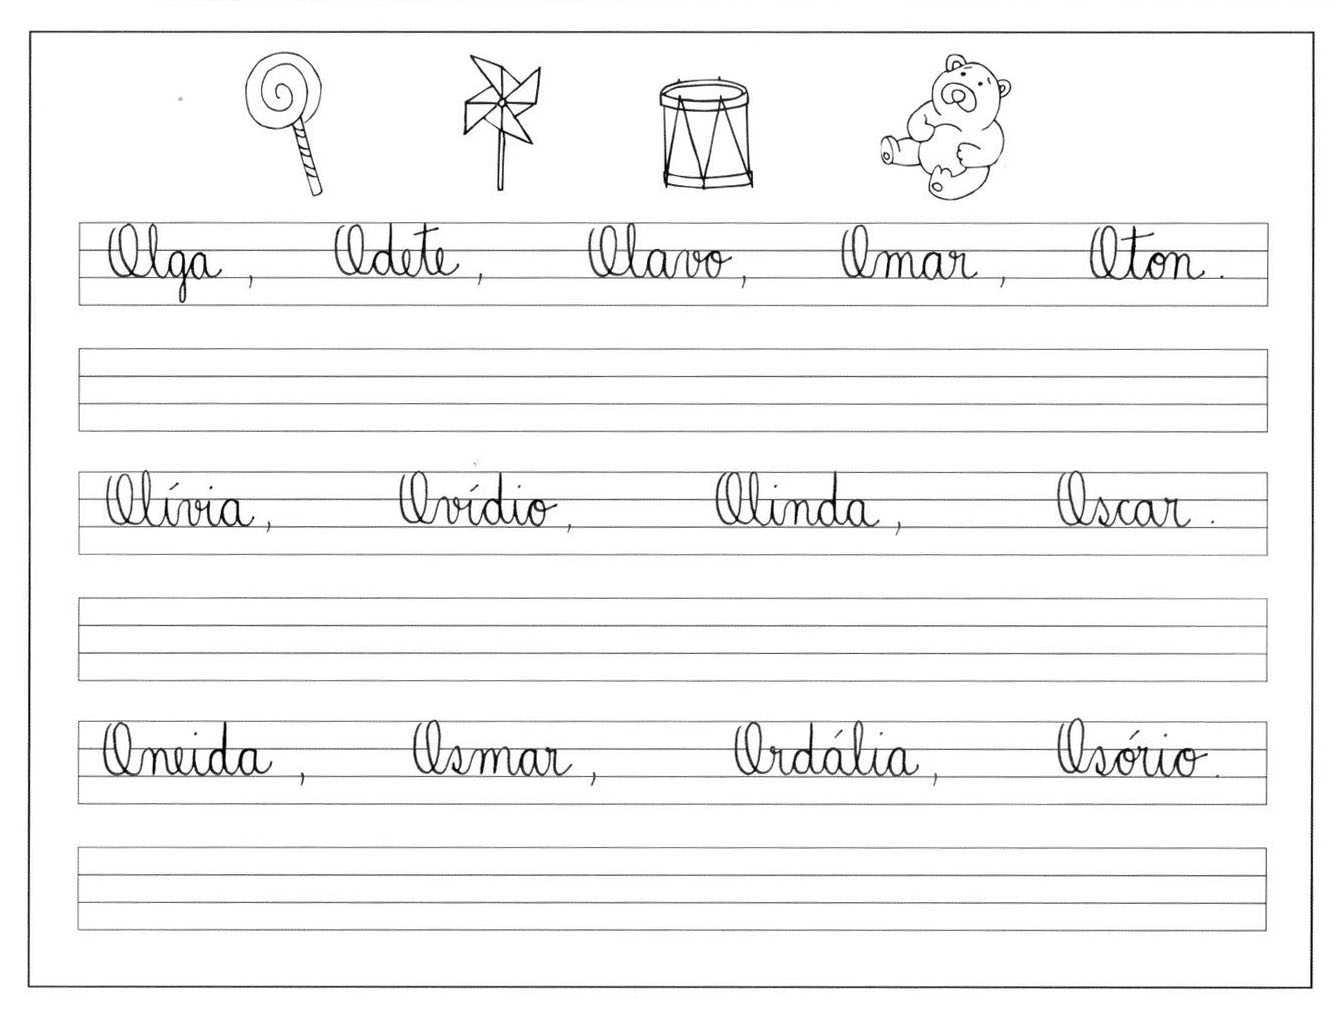 Olga, Odete, Olavo, Omar, Oton.
Olívia, Ovídio, Olinda, Oscar.
Oneida, Osmar, Ordália, Osório.